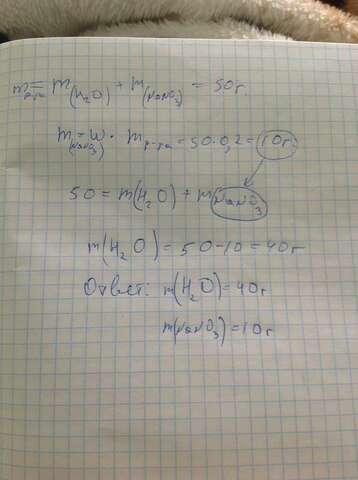 m р-ра = m(H₂O) + m(NaNO₃) = 50г.
m(NaNO₃) = W · m р-ра = 50·0,2 = 10г.
50 = m(H₂O) + m(NaNO₃)
m(H₂O) = 50-10 = 40г
Ответ: m(H₂O) = 40г
m(NaNO₃) = 10г